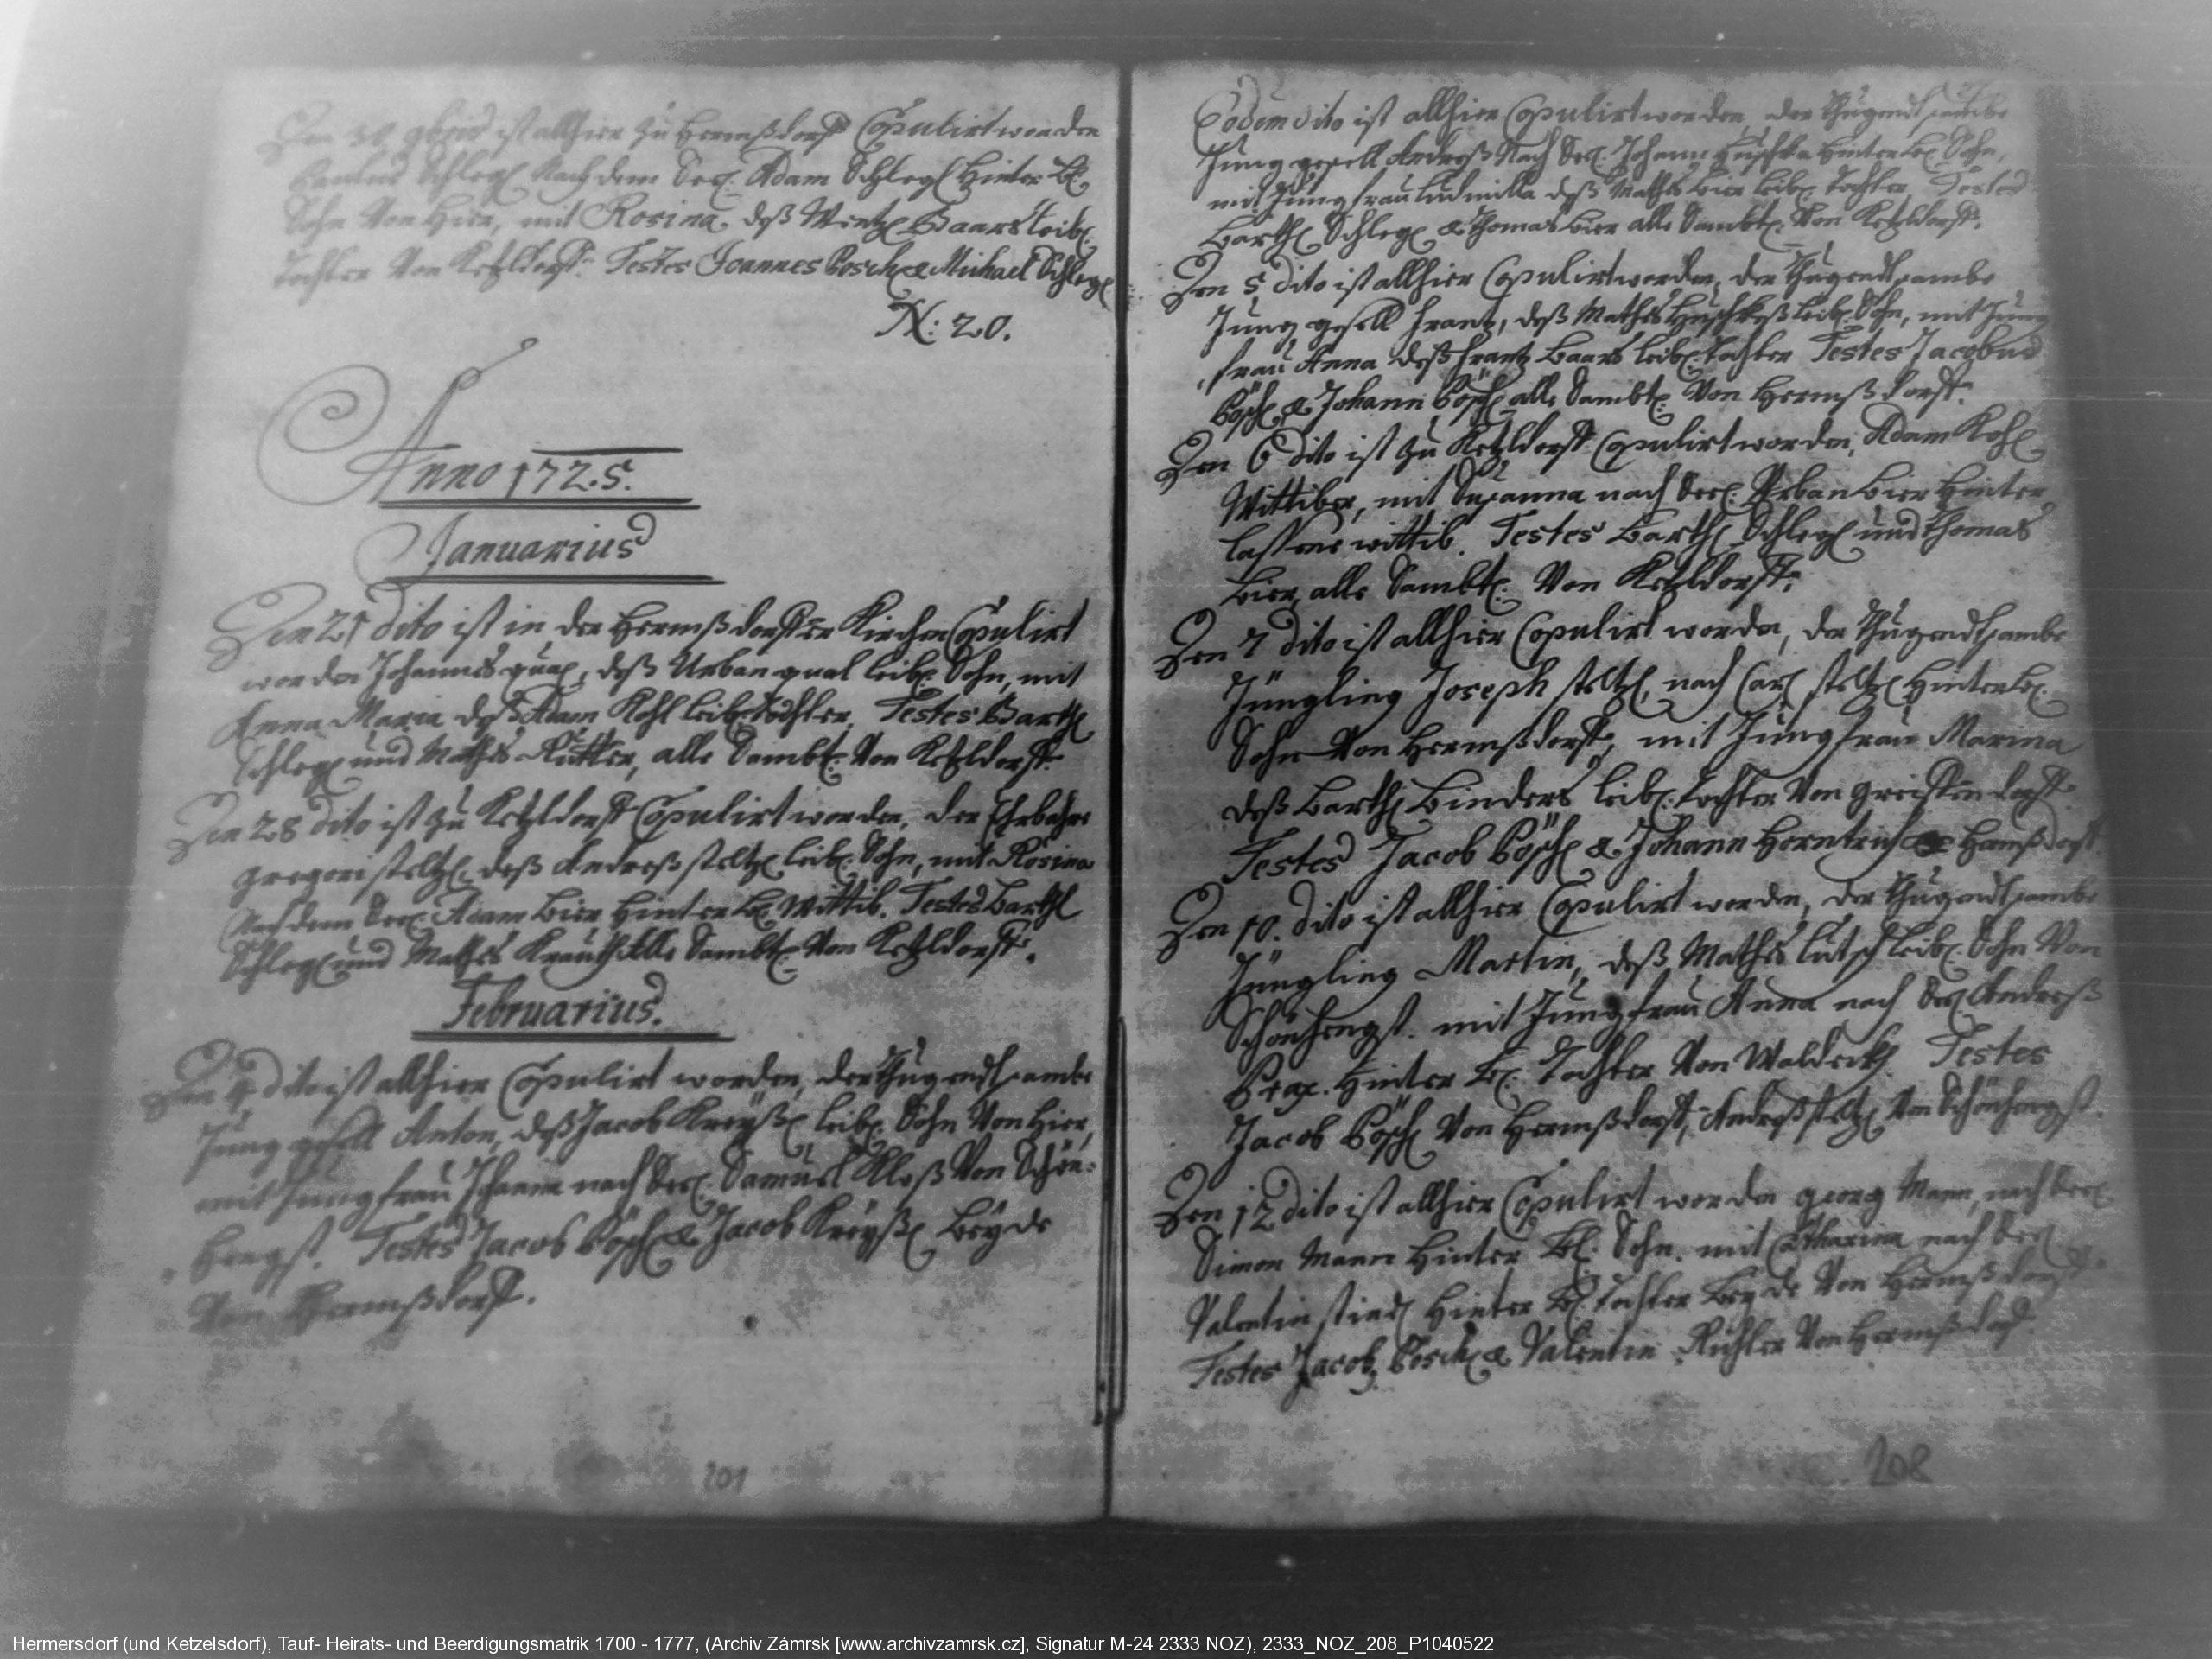 Den 30 9bris ist allhier zu Hermßdorff Copulirt worden
Paulus Schlegl Nach dem Seel. Adam Schlegl Hinter Bl.
Sohn Von Hier, mit Rosina deß Wentzl Baars leibl.
tochter Von Ketzldorff. Testes Joannes Posch & Michael Schlegl
N: 20.
Anno 1725.
Januarius
Den 21 dito ist in der Hermßdorffer Kirchen Copulirt
worden Johannes qual, deß Urban qual leibl. Sohn, mit
Anna Maria deß Adam Kohl leibl. tochter, Testes Barthl
Schlegl und Mathes Rütter, alle Sambt. Von Ketzldorff.
Den 28 dito ist zu Ketzldorff Copulirt worden, der Ehrbahre
gregori steltzl, deß Andreß steltzl leibl. Sohn, mit Rosina
Nach dem Seel. Adam Bier Hinter bl. Wittib. Testes Barthl
Schlegl und Mathes Krauth Alle Sambt. Von Ketzldorff.
Februarius.
Den dito ist allhier Copulirt worden, der thugendsambe
Jung gesell Anton, deß Jacob Kreyßl leibl. Sohn Von Hier,
mit Jungfrau nach Seel. Samuel Kloß Von Schön-
hengst. Testes Jacob Pösch & Jacob Kreyßl Beyde
Von Hermßdorff.
201
Eodem dito ist allhier Copulirt worden, der thugendsambe
Jung gesell Andreß Nach Seel. Johann Huschka Hinter bl. Sohn,
mit Jungfrau Ludmilla deß Mathes Bier leibl. tochter, Testes
Barthl Schlegl & Thomas Bier alle Sambt. Von Ketzldorff.
Den 5 dito ist allhier Copulirt worden, der thugendsambe
Jung gesell Frantz, deß Mathes leibl. Sohn, mit Jung
frau Anna deß Frantz Baars leibl. tochter Testes Jacobus
Pösch & Johann Pösch alle Sambt. Von Hermßdorff.
Den 6 dito ist zu Ketzldorff Copulirt worden, Adam Kohl
Wittiber, mit Susanna nach Seel. Urban Bier Hinter
lassene wittib. Testes Barthl Schlegl und thomas
Bier, alle Sambt. Von Ketzldorff.
Den 7 dito ist allhier Copulirt worden, der thugendsambe
Jüngling Joseph steltzl, nach Carl steltzl Hinter bl.
Sohn Von Hermßdorff, mit Jungfrau Marina
deß Barthl Binders leibl. tochter Von greiffendorff.
Testes Jacob Pösch & Johann Horntrich Hermßdorff.
Den 10. dito ist allhier Copulirt worden, der thugendsambe
Jüngling Martin, deß Mathes lutsch leibl. Sohn Von
Schönhengst. mit Jungfrau Anna nach Seel. Andreß
Hinter bl. Tochter Von Waldeckh. Testes
Jacob Pösch Von Hermßdorff, Andreß steltzl Von Schönhengst.
Den 12 dito ist allhier Copulirt worden georg Mann, nach Seel.
Simon Mann Hinter Bl. Sohn. mit Catharina nach Seel.
Valentin Hinter Bl. tochter Beyde Von Hermßdorff
Testes Jacob Posch & Valentin Richter Von Hermßdorff.
208
Hermersdorf (und Ketzelsdorf), Tauf- Heirats- und Beerdigungsmatrik 1700 - 1777, (Archiv Zámrsk [www.archivzamrsk.cz], Signatur M-24 2333 NOZ), 2333_NOZ_208_P1040522